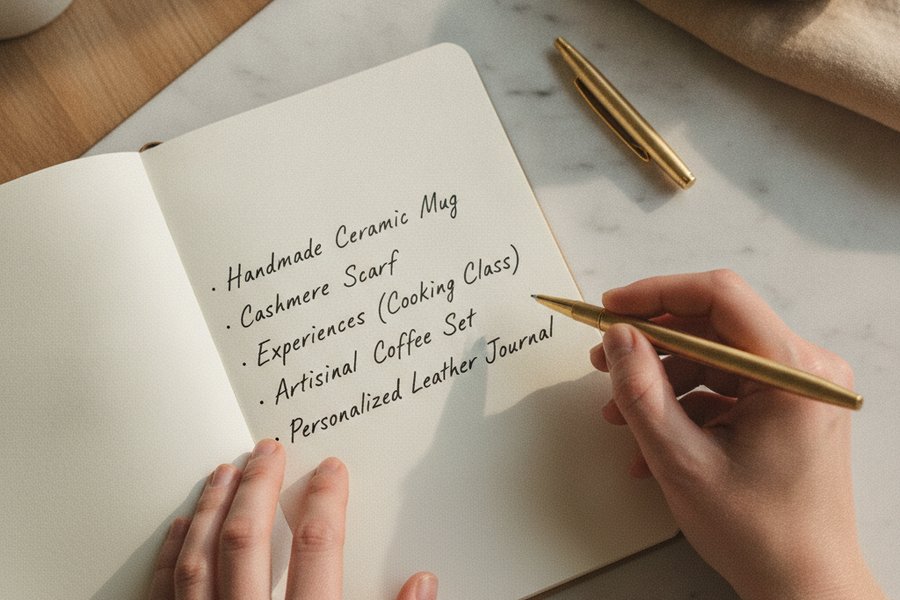 · Handmade Ceramic Mug
· Cashmere Scarf
· Experiences (Cooking Class)
· Artisinal Coffee Set
· Personalized Leather Journal